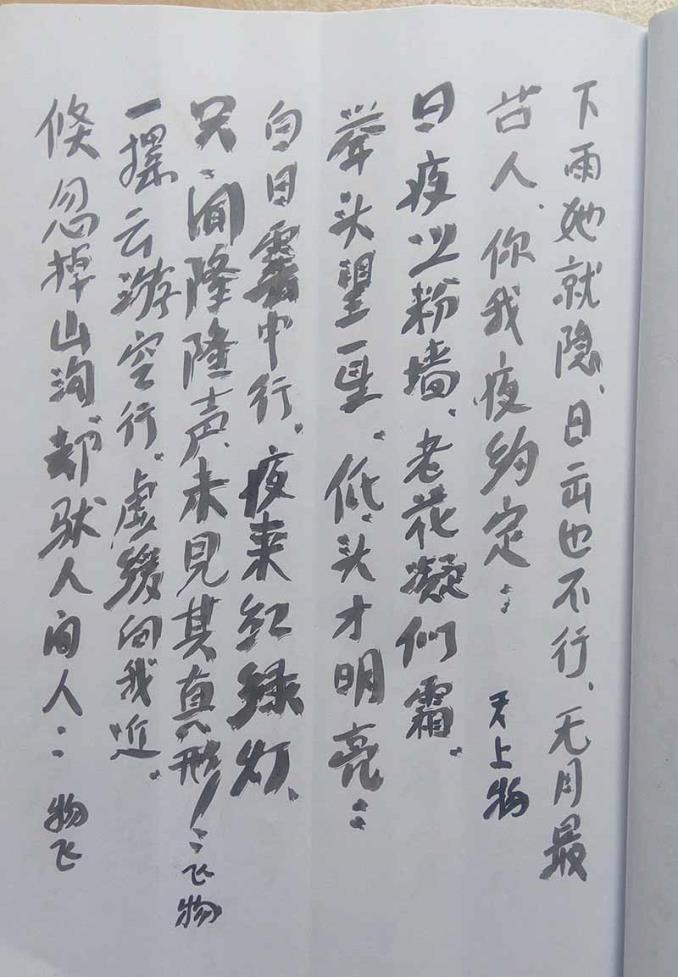 下雨她就隐、日出也不行、无月最
苦人、你我夜约定：天上物
日夜上粉墙、老花凝似霜。
举头望一望。低头才明亮：
白日雾中行。夜来红绿灯、
只闻隆隆声、未见其真形！：飞物
一摆云游空行。虚缓向我近。
倏忽掉山沟却驮人间人：物飞